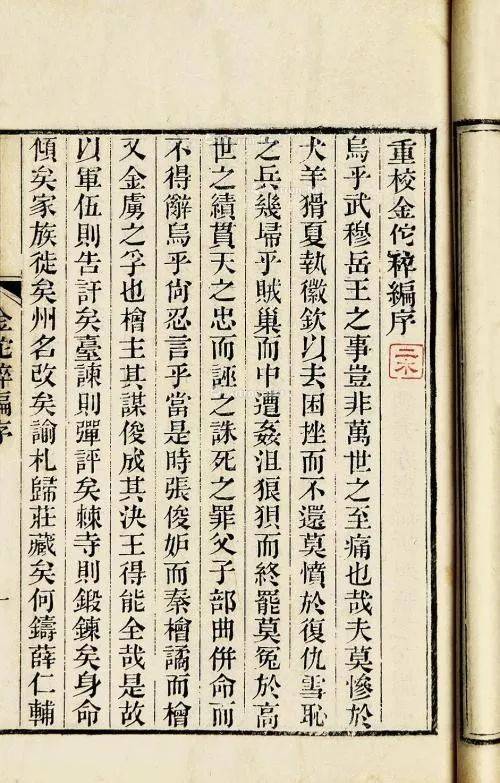 重校金佗稡編序
烏乎武穆岳王之事豈非萬世之至痛也哉夫莫慘於
犬羊猾夏執徽欽以去困挫而不還莫憤於復仇雪恥
之兵幾埽乎賊巢而中遭姦沮狼狽而終罷莫冤於高
世之績貫天之忠而誣之誅死之罪父子部曲併命而
不得辭烏乎尙忍言乎當是時張俊妒而秦檜譎而檜
又金虜之孚也檜主其謀俊成其決王得能全哉是故
以軍伍則告訐矣臺諫則彈評矣棘寺則鍛鍊矣身命
傾矣家族徙矣州名改矣諭札歸莊藏矣何鑄薛仁輔
金佗稡編序
一